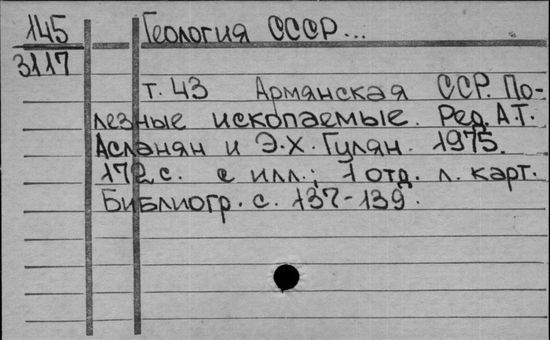 145 Геология СССР...
3117
т. 43 Армянская ССР. По-
лезные ископаемые. Ред. А.Т.
Асланян и Э.Х. Гулян. 1975.
172 с. с илл.; 1 отд. л. карт.
Библиогр. с. 137-139.